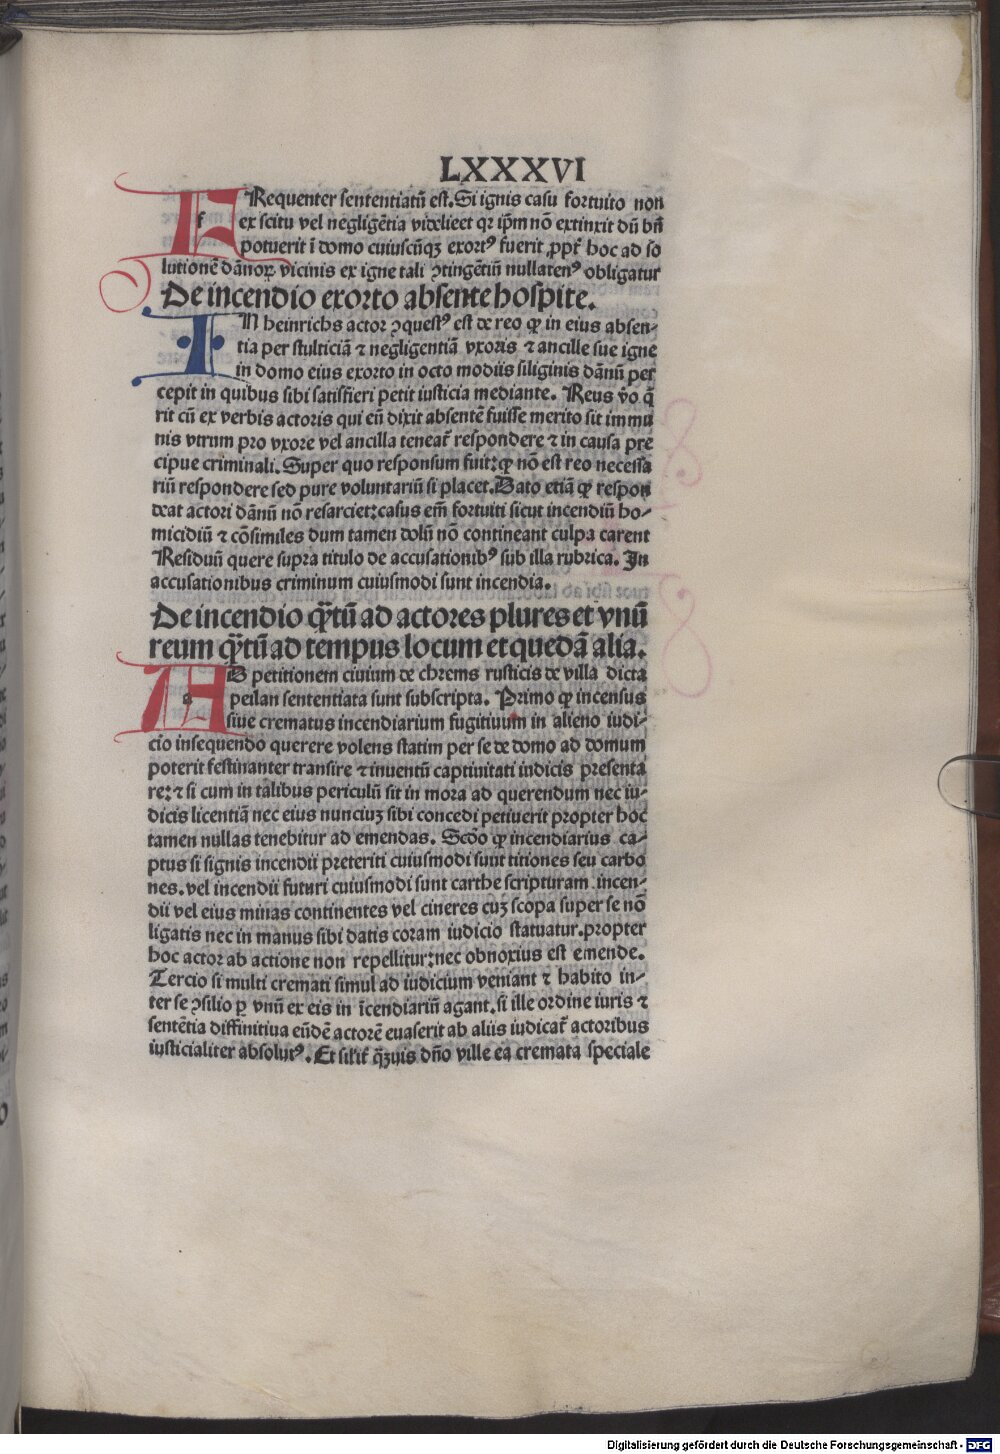 LXXXVI
FRequenter sententiatū est. Si ignis casu fortuito non
ex scitu vel negligētia videlicet qꝛ ip̄m nō extinxit dū bn̄
potuerit ī domo cuiuscūqꝫ exortꝰ fuerit ꝓpt̄ hoc ad so
lutionē dānoꝝ vicinis ex igne tali ꝯtingētiū nullatenꝰ obligatur
De incendio exorto absente hospite.
IN heinrichs actor ꝯquestꝰ est de reo ꝙ in eius absen-
tia per stulticiā ⁊ negligentiā vxoris ⁊ ancille sue igne
in domo eius exorto in octo modiis siliginis dānū per
cepit in quibus sibi satisfieri petit iusticia mediante. Reus v̄o q̄
rit cū ex verbis actoris qui eū dixit absentē fuisse merito sit immu
nis vtrum pro vxore vel ancilla teneat᷑ respondere ⁊ in causa pre
cipue criminali. Super quo responsum fuit: ꝙ nō est reo necessa
riū respondere sed pure voluntariū si placet. Dato etiā ꝙ respon
deat actori dānū nō resarciet: casus em̄ fortuiti sicut incendiū ho-
micidiū ⁊ cōsimiles dum tamen dolū nō contineant culpa carent
Residuū quere supra titulo de accusationibꝰ sub illa rubrica. In
accusationibus criminum cuiusmodi sunt incendia.
De incendio q̄tū ad actores plures et vnū
reum q̄tū ad tempus locum et quedā alia.
AD petitionem ciuium de chrems rusticis de villa dicta
peilan sententiata sunt subscripta. Primo ꝙ incensus
siue crematus incendiarium fugitiuum in alieno iudi-
cio insequendo querere volens statim per se de domo ad domum
poterit festinanter transire ⁊ inuentū captiuitati iudicis presenta
re: ⁊ si cum in talibus periculū sit in mora ad querendum nec iu-
dicis licentiā nec eius nunciuꝫ sibi concedi petiuerit propter hoc
tamen nullas tenebitur ad emendas. Scdo ꝙ incendiarius ca-
ptus si signis incendii preteriti cuiusmodi sunt titiones seu carbo
nes. vel incendii futuri cuiusmodi sunt carthe scripturam incen-
dii vel eius minas continentes vel cineres cuꝫ scopa super se nō
ligatis nec in manus sibi datis coram iudicio statuatur. propter
hoc actor ab actione non repellitur: nec obnoxius est emende.
Tercio si multi cremati simul ad iudicium veniant ⁊ habito in-
ter se ꝯsilio ꝑ vnū ex eis in īcendiariū agant. si ille ordine iuris ⁊
sentētia diffinitiua eūdē actorē euaserit ab aliis iudicat᷑ actoribus
iusticialiter absolutꝰ. Et sil'it᷑ q̄ꝫuis dn̄o ville ea cremata speciale
Digitalisierung gefördert durch die Deutsche Forschungsgemeinschaft - DFG